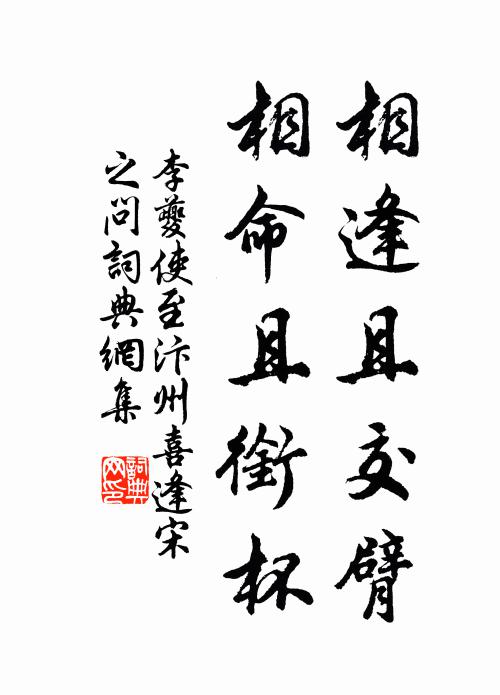 相逢且交臂
相命且銜杯
李夔使至汴州喜逢宋
之问詞典網集
詞典
网印